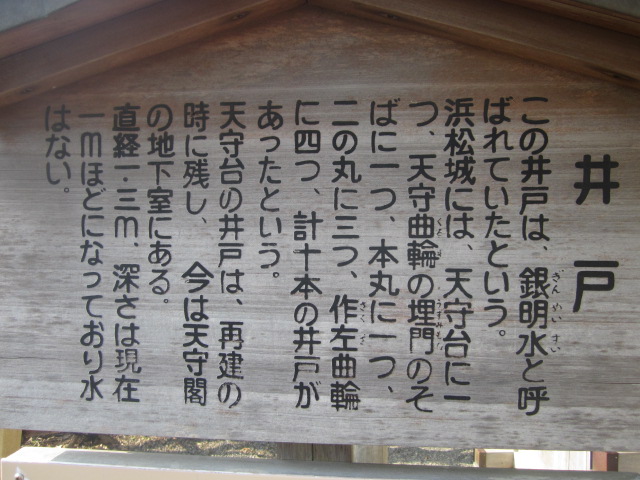 井戸
この井戸は、銀明水と呼
ばれていたという。
浜松城には、天守台に一
つ、天守曲輪の埋門のそ
ばに一つ、本丸に一つ、
二の丸に三つ、作左曲輪
に四つ、計十本の井戸が
あったという。
天守台の井戸は、再建の
時に残し、今は天守閣
の地下室にある。
直経一三m、深さは現在
一mほどになっており水
はない。